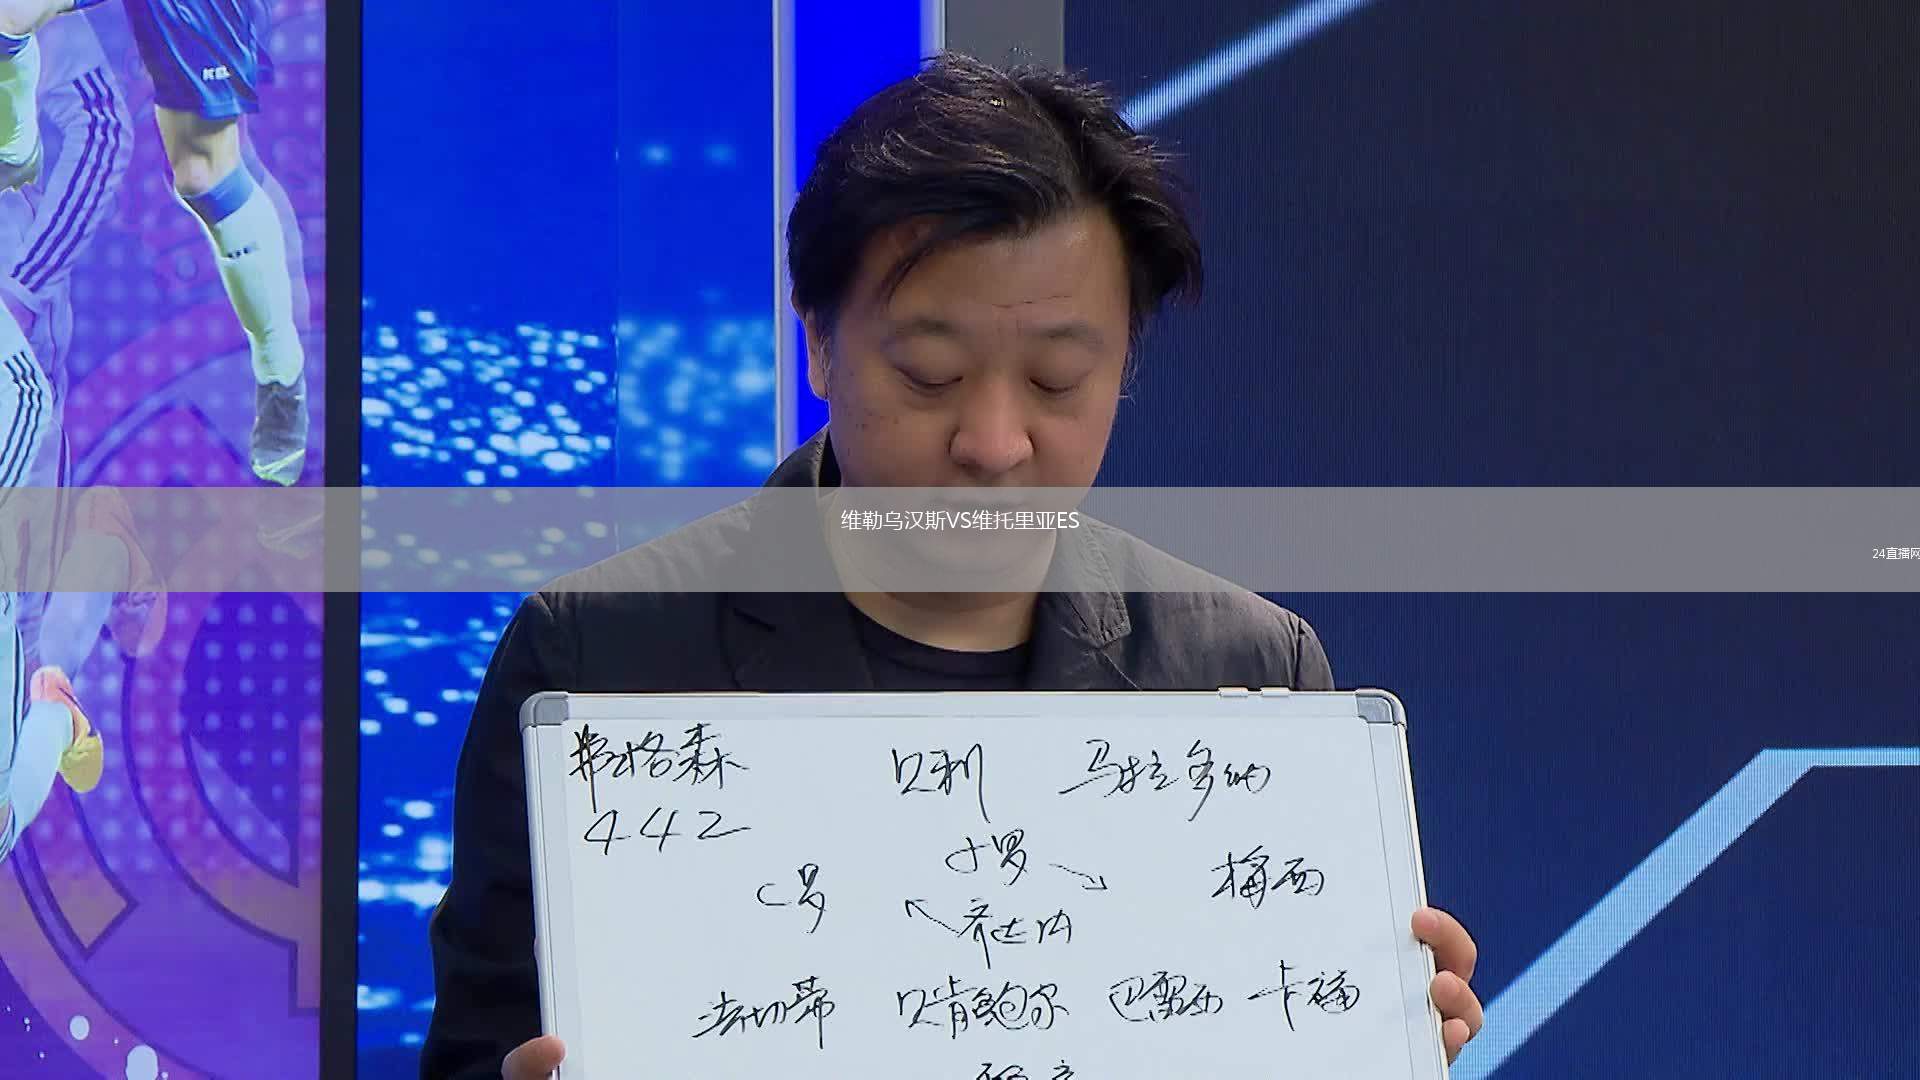 维勒乌汉斯VS维托里亚ES
24直播网
弗格森 贝利 马拉多纳
442
小罗
C罗 梅西
齐达内
法切蒂 贝肯鲍尔 巴雷西 卡福